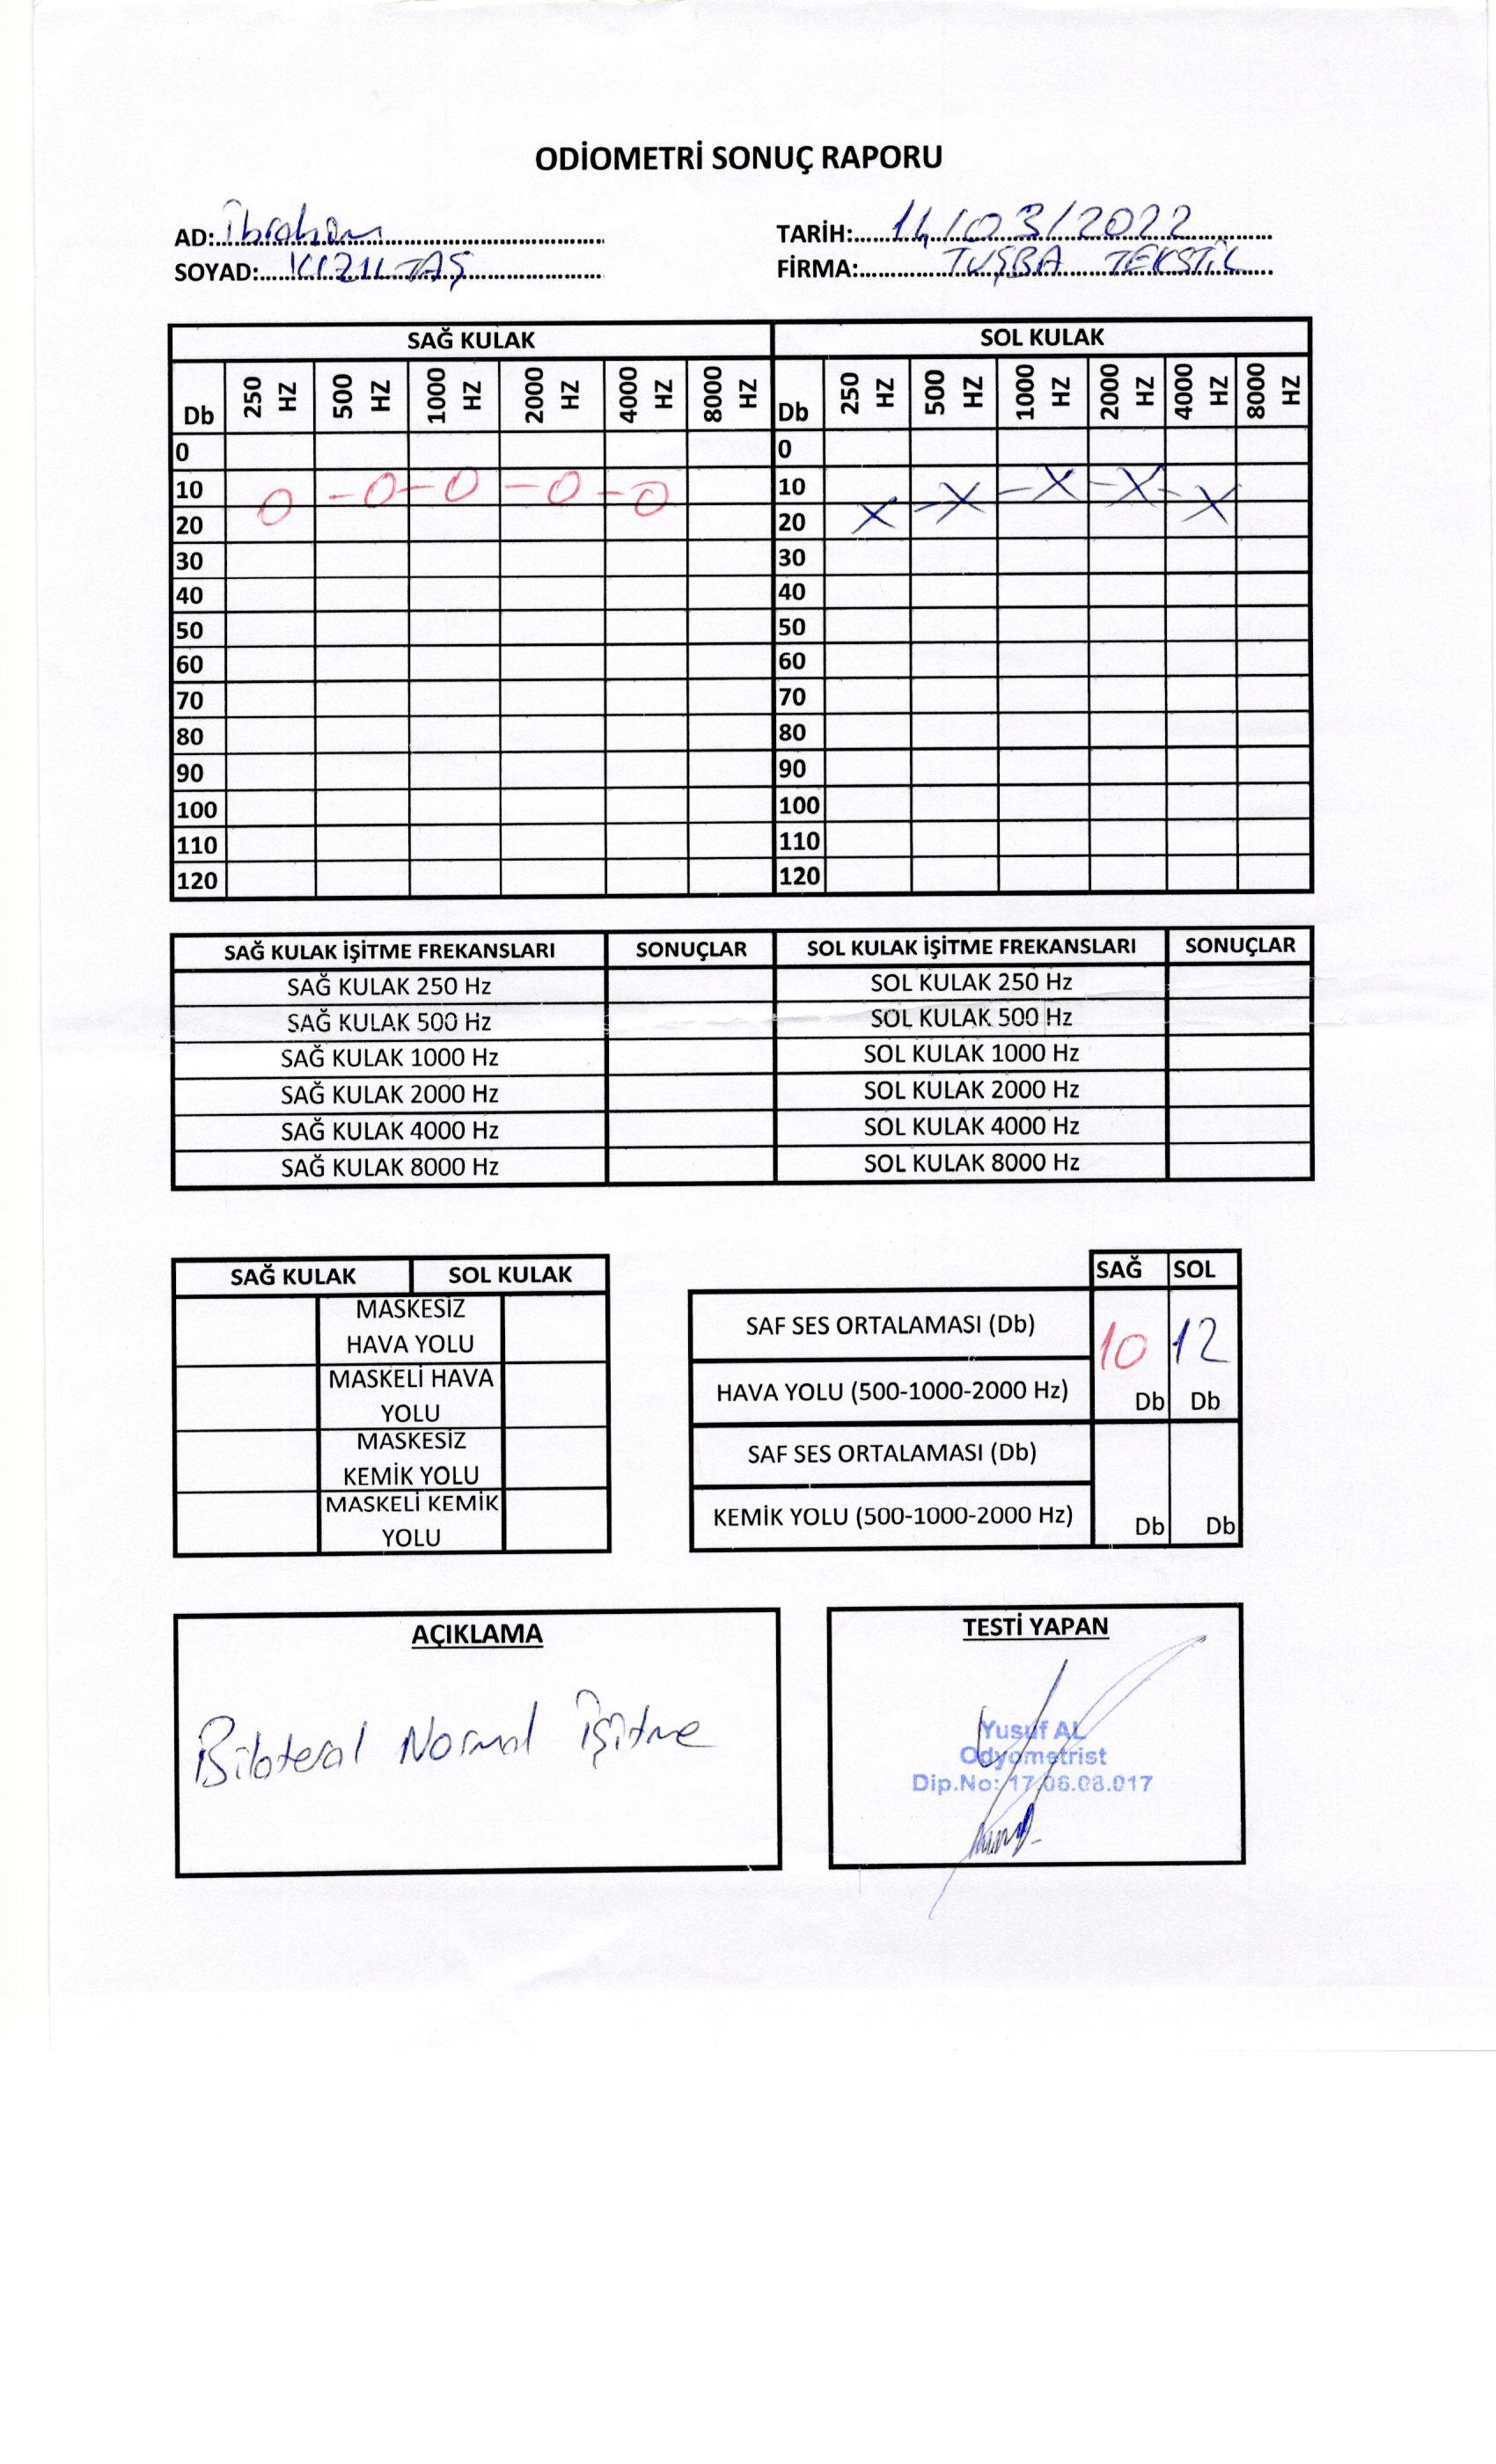 ODİOMETRİ SONUÇ RAPORU
AD: İbrahim TARİH: 14/03/2022
SOYAD: KIZILTAŞ FİRMA: TUŞBA TEKSTİL
SAĞ KULAK SOL KULAK
Db 250 HZ 500 HZ 1000 HZ 2000 HZ 4000 HZ 8000 HZ Db 250 HZ 500 HZ 1000 HZ 2000 HZ 4000 HZ 8000 HZ
0 0
10 10
20 20
30 30
40 40
50 50
60 60
70 70
80 80
90 90
100 100
110 110
120 120
SAĞ KULAK İŞİTME FREKANSLARI SONUÇLAR SOL KULAK İŞİTME FREKANSLARI SONUÇLAR
SAĞ KULAK 250 Hz SOL KULAK 250 Hz
SAĞ KULAK 500 Hz SOL KULAK 500 Hz
SAĞ KULAK 1000 Hz SOL KULAK 1000 Hz
SAĞ KULAK 2000 Hz SOL KULAK 2000 Hz
SAĞ KULAK 4000 Hz SOL KULAK 4000 Hz
SAĞ KULAK 8000 Hz SOL KULAK 8000 Hz
SAĞ KULAK SOL KULAK
MASKESİZ
HAVA YOLU
MASKELİ HAVA
YOLU
MASKESİZ
KEMİK YOLU
MASKELİ KEMİK
YOLU
SAĞ SOL
SAF SES ORTALAMASI (Db)
10 12
HAVA YOLU (500-1000-2000 Hz) Db Db
SAF SES ORTALAMASI (Db)
KEMİK YOLU (500-1000-2000 Hz) Db Db
AÇIKLAMA
Bilateral Normal İşitme
TESTİ YAPAN
Yusuf AL
Odyometrist
Dip.No: 17.06.08.017